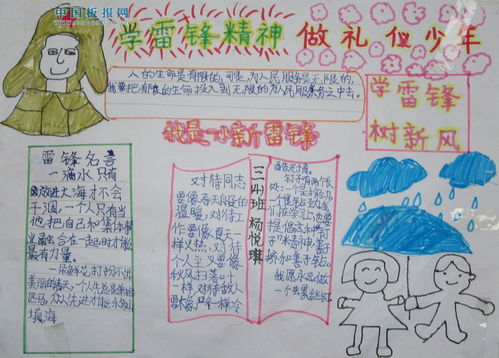 中国板报网
学雷锋精神 做礼仪少年
人的生命是有限的,可是,为人民服务是无限的,
我要把有限的生命投入到无限的为人民服务之中去。
学雷锋
树新风
我是小新雷锋
雷锋名言
一滴水只有
放进大海才不会
干涸,一个人只有当
他把自己和集体事
业融合在一起时才能
最有力量。
一朵鲜花打扮不出
美丽的春天,个人先进总是单枪
匹马,众人先进才能移山
填海
对待同志
要像春天般的
温暖,对待工
作要像夏天一
样火热,对待
个人主义要像
秋风扫落叶一
样,对待敌人
要像严冬一样冷
三(4)班 杨悦琪
钉子有两个长
处:一个是挤劲
一个是钻劲
我愿永远做
一个螺丝钉